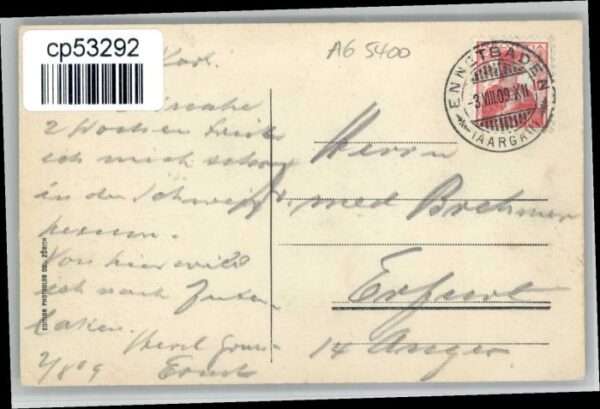 cp53292
AG 5400
ENNETBADEN
-3.VIII.09.XII
(AARGAU)
Karl.
2 Wochen
ich mich schon
in der Schweiz
herum.
Von hier will
ich nach Inter
laken.
Herzl Gruss
2/8 09 Ernst
EDITION PHOTOGLOB CO., ZÜRICH
Herrn
Dr. med Brehmer
Erfurt
14 Anger